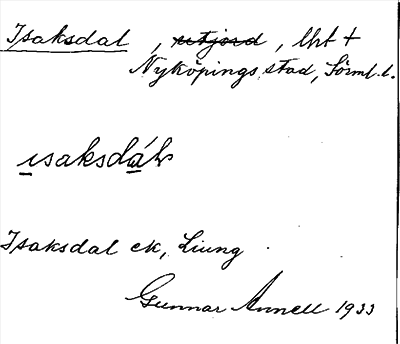 Isaksdal, utjord, lht +
Nyköpings stad, Sörml. l.
ısaksdál
Isaksdal ek, Liung
Gunnar Annell 1933